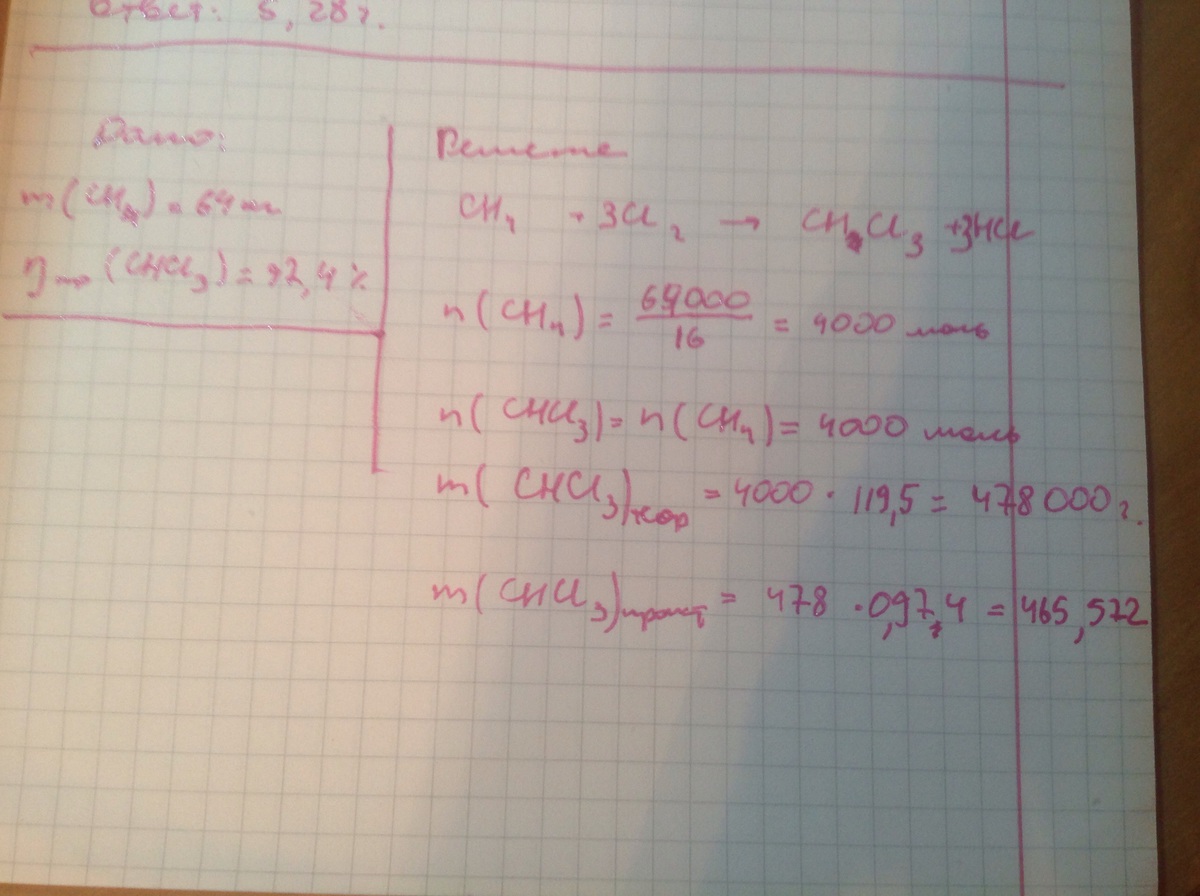 Ответ: 5,28 г.
Дано:
m(CH₄) = 64 кг
η пр (CHCl₃) = 92,4%
Решение
CH₄ + 3Cl₂ → CHCl₃ + 3HCl
n(CH₄) = 64000/16 = 4000 моль
n(CHCl₃) = n(CH₄) = 4000 моль
m(CHCl₃)теор = 4000 · 119,5 = 478000 г.
m(CHCl₃)практ = 478 · 0,97,4 = 465,572